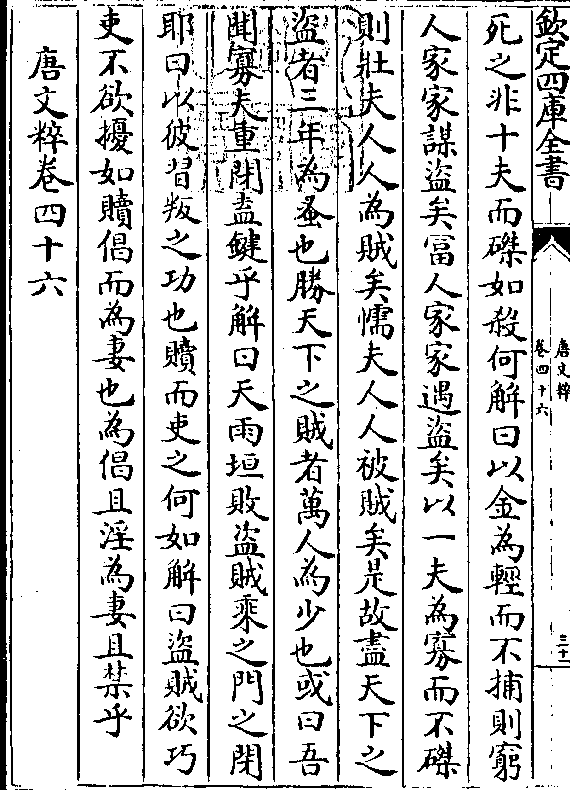 欽定四庫全書
唐文粹
卷四十六
三十一
死之非十夫而磔如殺何解曰以金為輕而不捕則窮
人家家謀盜矣冨人家家遇盜矣以一夫為寡而不磔
則壯夫人人為賊矣懦夫人人被賊矣是故盡天下之
盜者三年為蚤也勝天下之賊者萬人為少也或曰吾
聞寡夫重閉盍鍵乎解曰天雨垣敗盜賊乘之門之閉
耶曰以彼習叛之功也贖而吏之何如解曰盜賊欲巧
吏不欲擾如贖倡而為妻也為倡且淫為妻且禁乎
唐文粹卷四十六